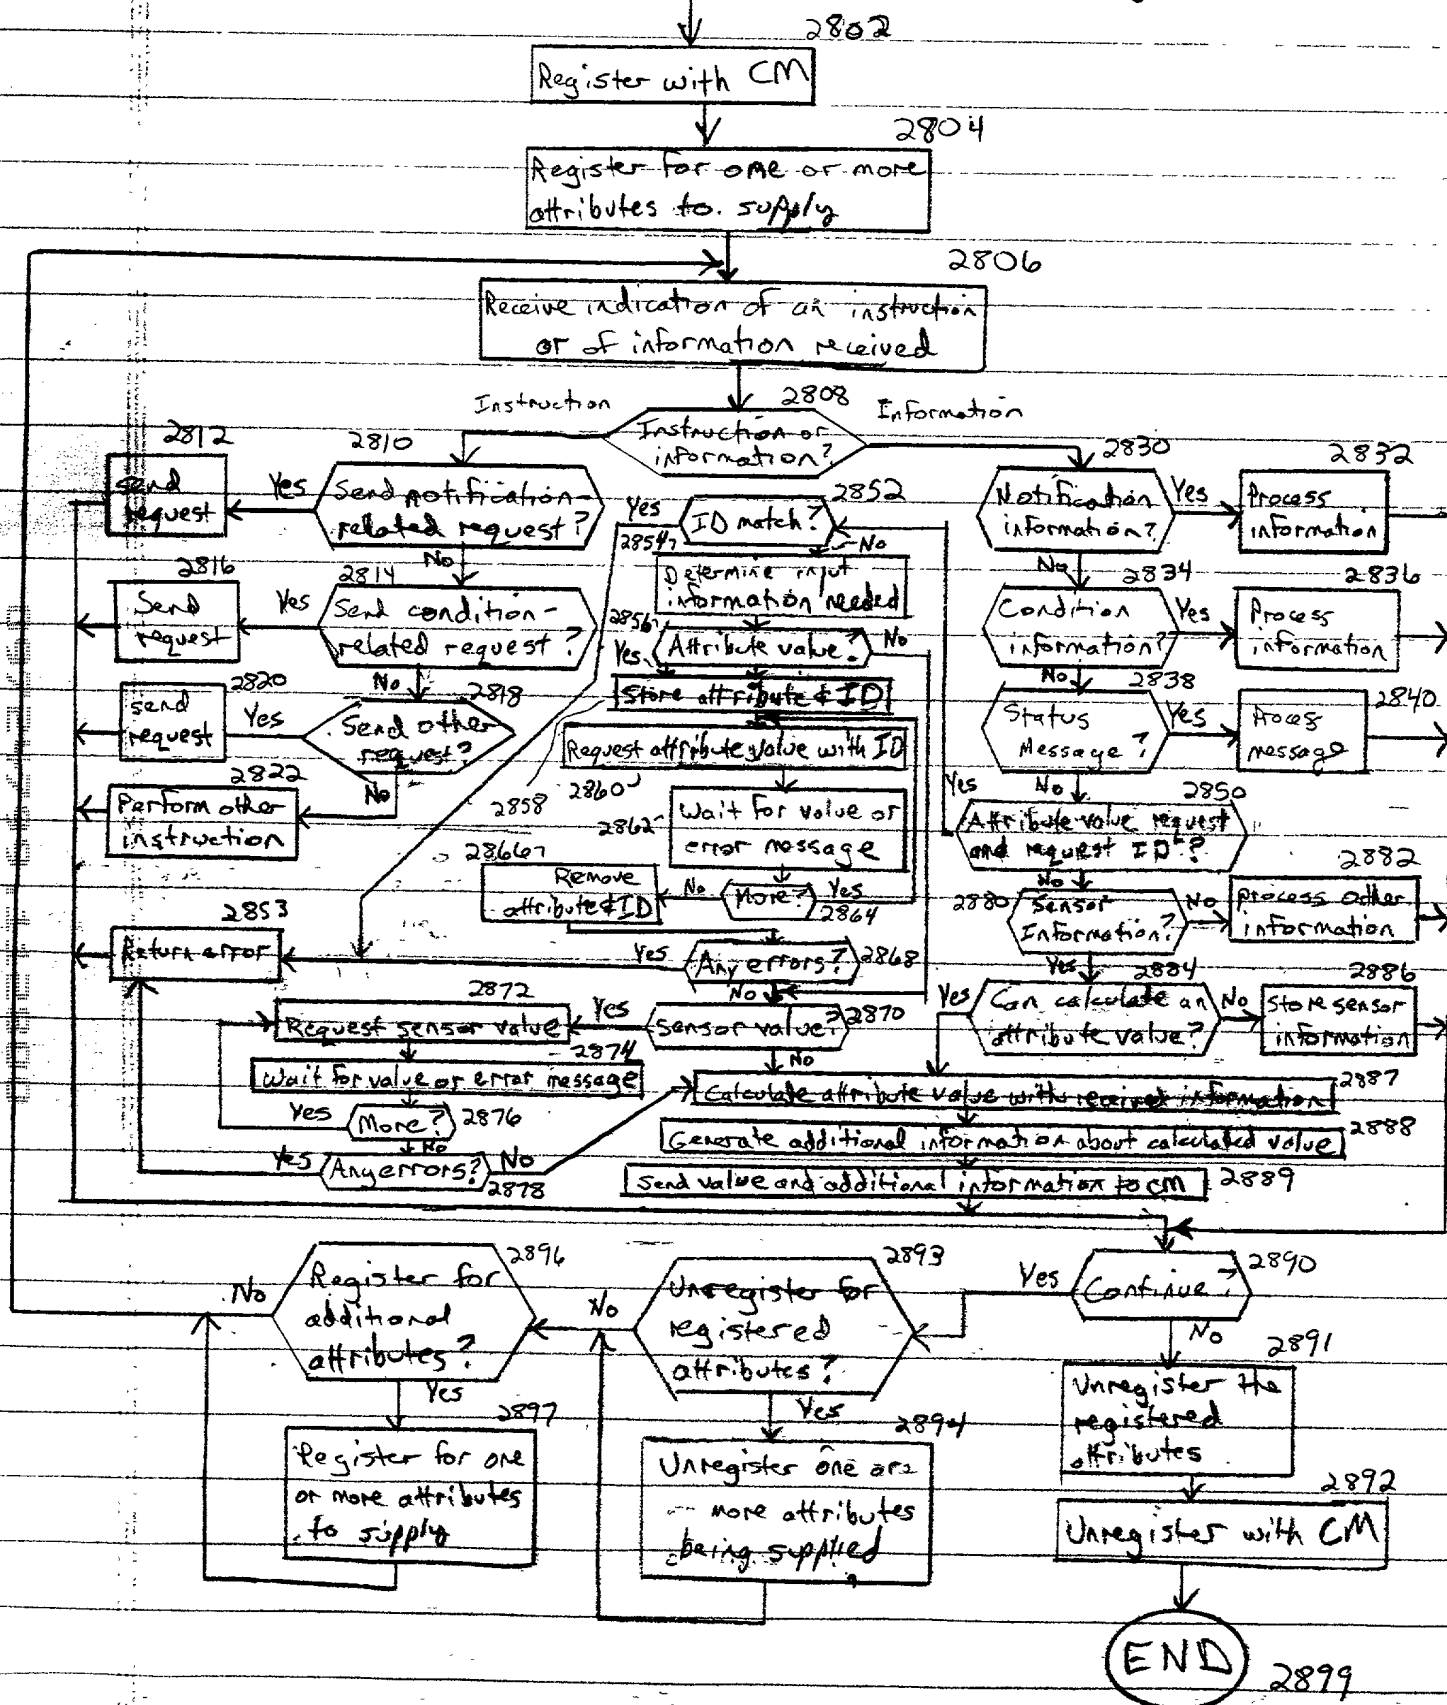 2802
Register with CM
2804
Register for one or more
attributes to supply
2806
Receive indication of an instruction
or of information received
2808
Instruction
Instruction or
information?
Information
2812
Send
request
Yes
2810
Send notification-
related request?
No
2816
Send
request
Yes
2814
Send condition-
related request?
No
2820
send
request
Yes
2818
Send other
request?
No
2822
Perform other
instruction
2852
Yes
ID match?
No
2854
Determine input
information needed
2856
Attribute value?
No
Yes
Store attribute & ID
2858
Request attribute value with ID
2860
Wait for value or
error message
2862
More?
Yes
2864
No
2866
Remove
attribute & ID
Any errors?
2868
Yes
No
2853
Return error
Sensor value?
2870
Yes
No
2872
Request sensor value
2874
Wait for value or error message
Yes
More?
2876
No
Yes
Any errors?
No
2878
2830
Notification
information?
Yes
2832
Process
information
No
2834
Condition
information?
Yes
2836
Process
information
No
2838
Status
Message?
Yes
2840
Proces
message
No
2850
Yes
Attribute value request
and request ID?
No
2880
Sensor
Information?
No
2882
process other
information
Yes
2884
Yes
Can calculate an
attribute value?
No
2886
Store sensor
information
2887
Calculate attribute value with received information
2888
Generate additional information about calculated value
Send value and additional information to CM
2889
2890
Continue?
Yes
No
2891
Unregister the
registered
attributes
2892
Unregister with CM
END
2899
2893
Unregister for
registered
attributes?
No
Yes
2894
Unregister one or
more attributes
being supplied
2896
Register for
additional
attributes?
No
Yes
2897
Register for one
or more attributes
to supply